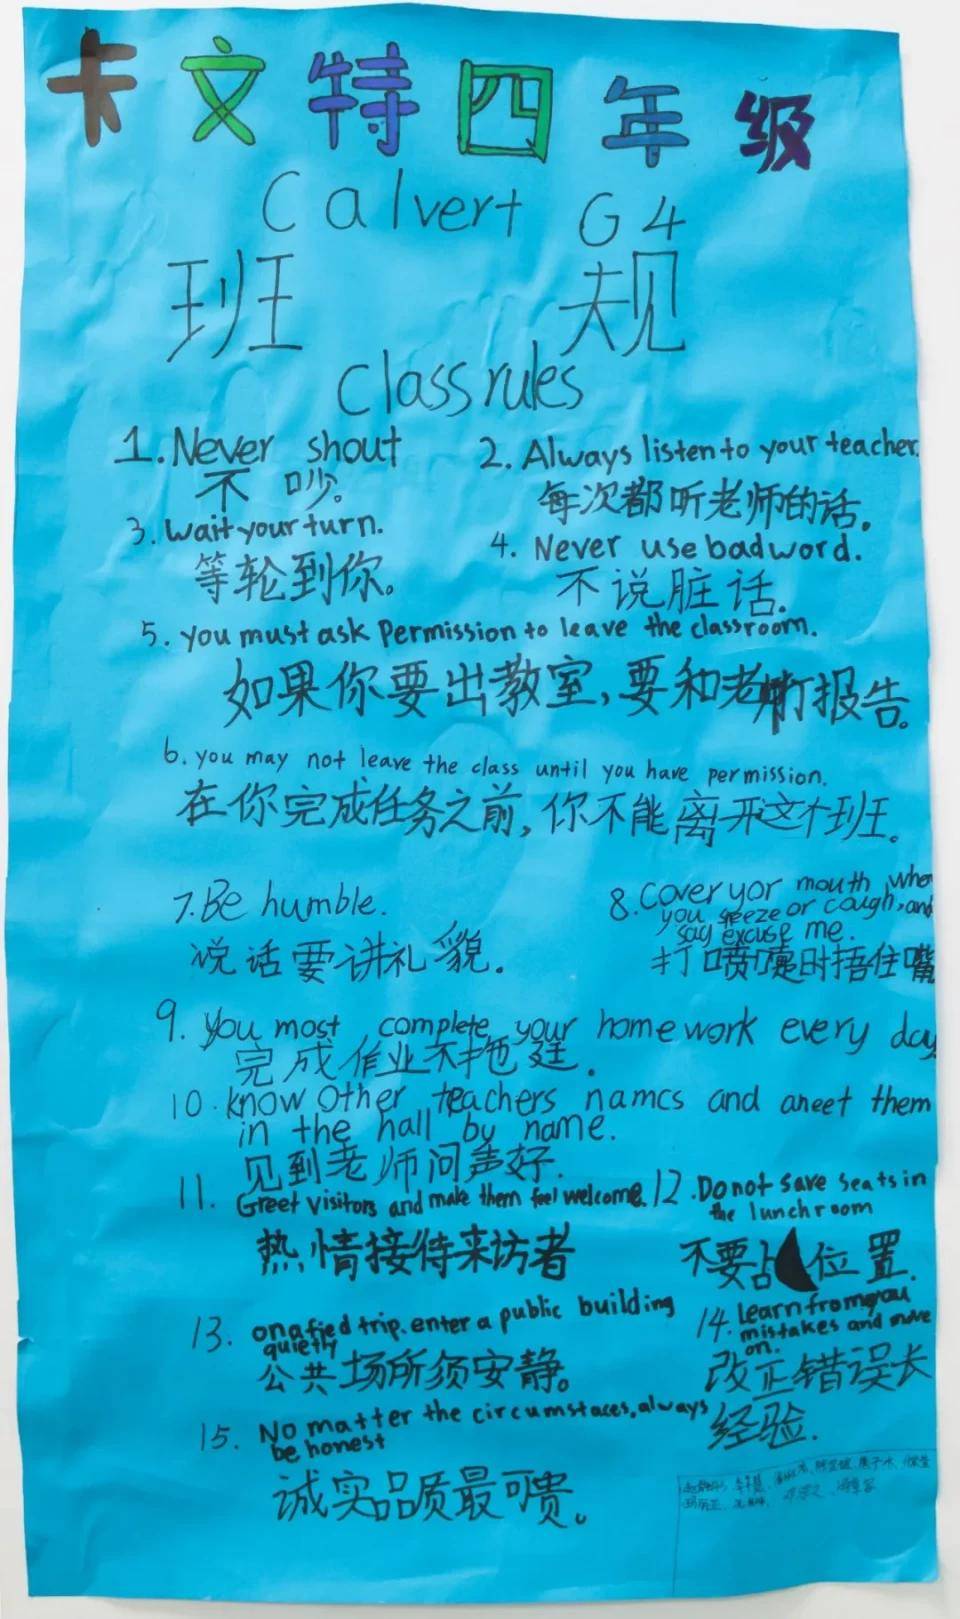 卡文特四年级
Calvert G4
班规
Class rules
1. Never shout
不吵。
2. Always listen to your teacher.
每次都听老师的话。
3. Wait your turn.
等轮到你。
4. Never use bad word.
不说脏话.
5. you must ask Permission to leave the classroom.
如果你要出教室,要和老师报告。
6. you may not leave the class until you have permission.
在你完成任务之前,你不能离开这个班。
7. Be humble.
说话要讲礼貌.
8. Cover yor mouth when
you sneeze or cough, and
say excuse me.
打喷嚏时捂住嘴
9. You most complete your homework every day.
完成作业不拖延.
10. know other teachers names and aneet them
in the hall by name.
见到老师问声好.
11. Greet visitors and make them feel welcome.
热情接待来访者
12. Do not save seats in
the lunchroom
不要占位置.
13. on a fied trip. enter a public building
quietly
公共场所须安静。
14. Learn from you
mistakes and move
on.
改正错误长
经验.
15. No matter the circumstaces, always
be honest
诚实品质最可贵。